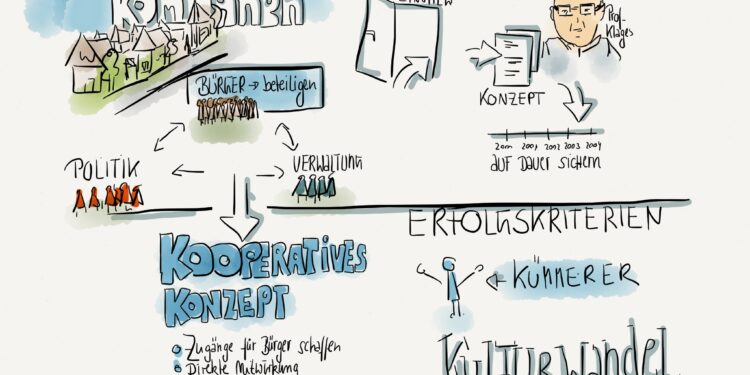 BÜRGER → beteiligen
POLITIK
VERWALTUNG
KOOPERATIVES
KONZEPT
Zugänge für Bürger schaffen
Direkte Mitwirkung
Prof.
Klages
KONZEPT
2000 2001 2002 2003 2004
AUF DAUER sichern
ERFOLGSKRITERIEN
KÜMMERER
KULTURWANDEL